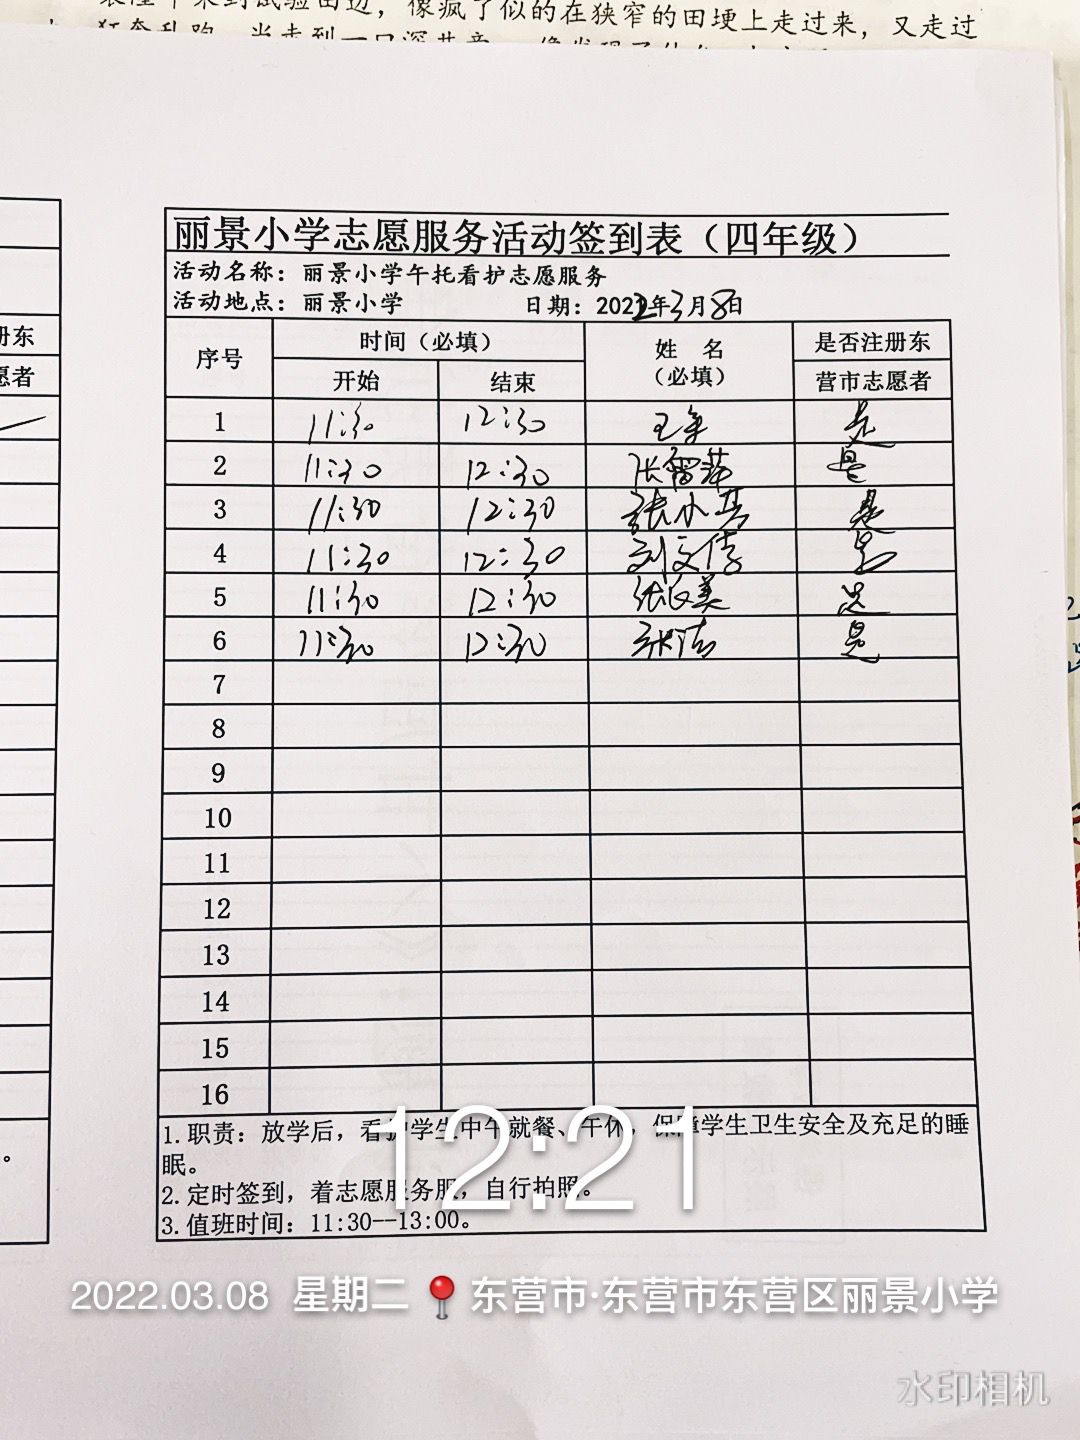 像疯了似的在狭窄的田埂上走过来，又走过
丽景小学志愿服务活动签到表（四年级）
活动名称：丽景小学午托看护志愿服务
活动地点：丽景小学 日期：2022年3月8日
册东
愿者
序号 时间（必填） 姓 名（必填） 是否注册东
开始 结束 营市志愿者
1 11:30 12:30 是
2 11:30 12:30 张智萍 是
3 11:30 12:30 张小 是
4 11:30 12:30 刘文倩 是
5 11:30 12:30 张 美 是
6 11:30 12:30 张洁 是
7
8
9
10
11
12
13
14
15
16
1.职责：放学后，看护学生中午就餐、午休，保障学生卫生安全及充足的睡
眠。
2.定时签到，着志愿服务服，自行拍照。
3.值班时间：11:30--13:00。
12:21
2022.03.08 星期二 东营市·东营市东营区丽景小学
水印相机